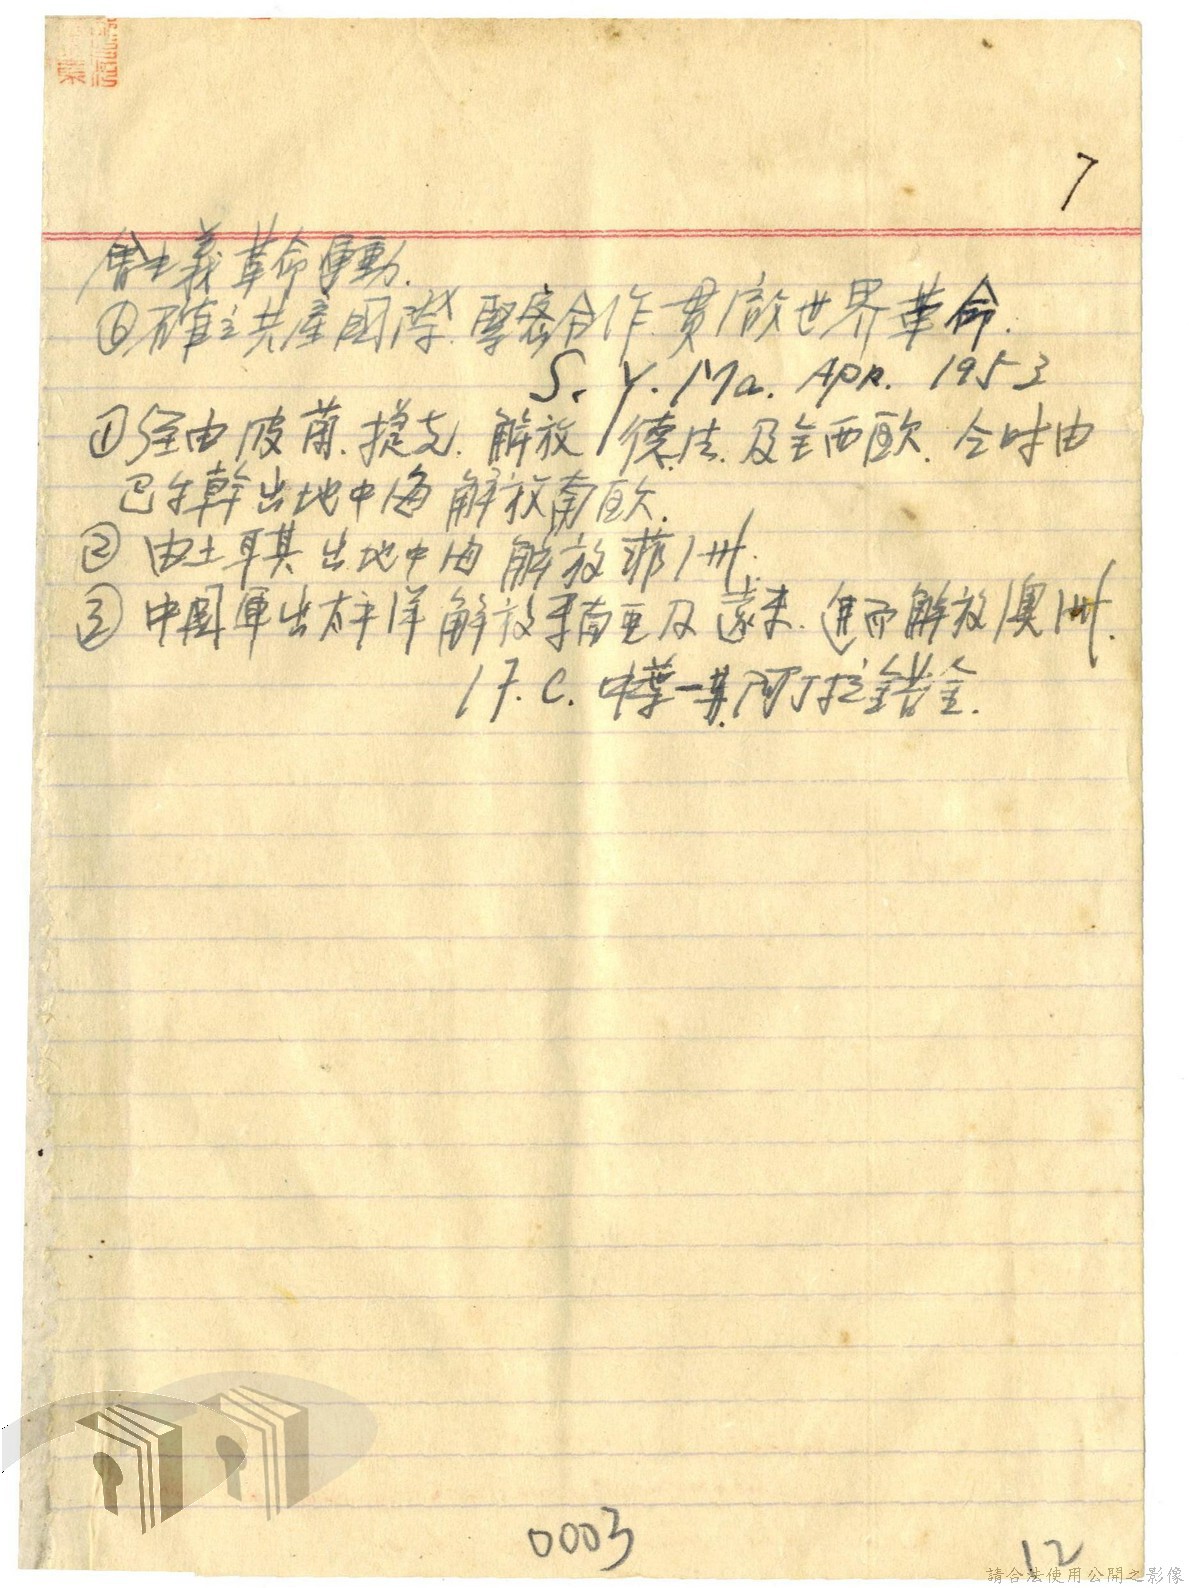 7
會主義革命運動.
⑥確立共產国際.緊密合作.貫徹世界革命.
S. Y. Ma. Apr. 1953
①経由波蘭.捷克.解放德.法.及全西歐.仝時由
巴尔幹出地中海解放南歐.
② 由土耳其出地中海解放菲洲.
③ 中国軍出太平洋解放東南亜及遠東.進而解放澳洲.
17. C. 中葉一 阿拉
0003
12
請合法使用公開之影像